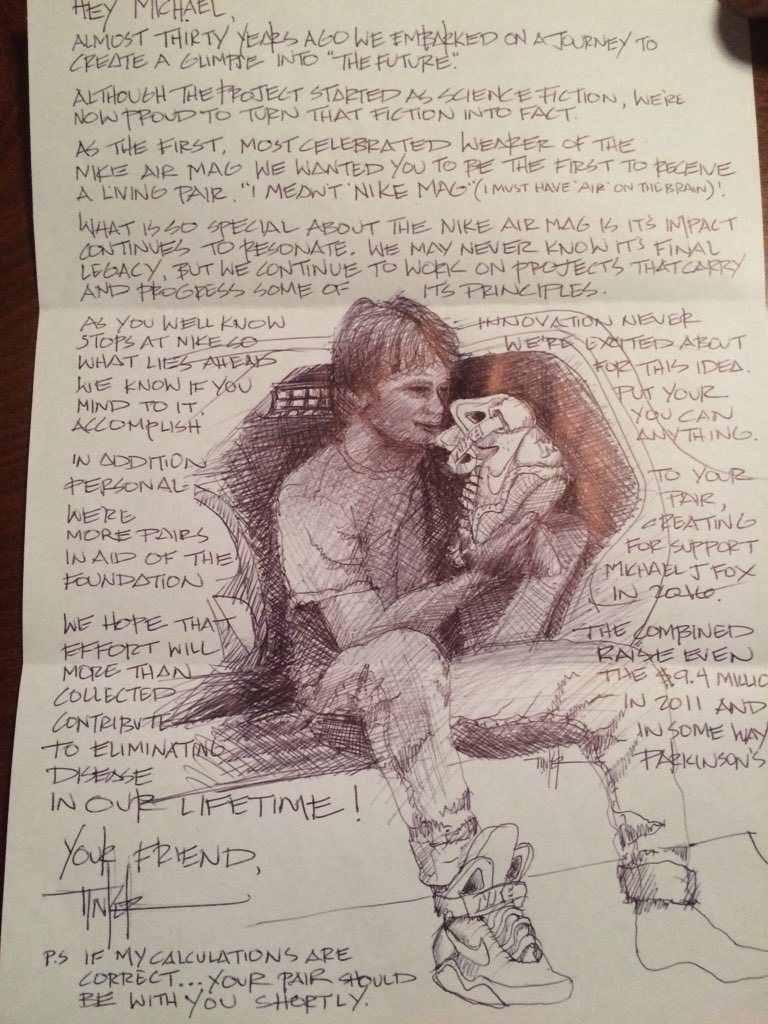 HEY MICHAEL,
ALMOST THIRTY YEARS AGO WE EMBARKED ON A JOURNEY TO
CREATE A GLIMPSE INTO "THE FUTURE."
ALTHOUGH THE PROJECT STARTED AS SCIENCE FICTION, WE'RE
NOW PROUD TO TURN THAT FICTION INTO FACT.
AS THE FIRST, MOST CELEBRATED WEARER OF THE
NIKE AIR MAG WE WANTED YOU TO BE THE FIRST TO RECEIVE
A LIVING PAIR. "I MEANT 'NIKE MAG'" (I MUST HAVE 'AIR' ON THE BRAIN)!
WHAT IS SO SPECIAL ABOUT THE NIKE AIR MAG IS IT'S IMPACT
CONTINUES TO RESONATE. WE MAY NEVER KNOW IT'S FINAL
LEGACY, BUT WE CONTINUE TO WORK ON PROJECTS THAT CARRY
AND PROGRESS SOME OF ITS PRINCIPLES.
AS YOU WELL KNOW INNOVATION NEVER
STOPS AT NIKE SO WE'RE EXCITED ABOUT
WHAT LIES AHEAD FOR THIS IDEA.
WE KNOW IF YOU PUT YOUR
MIND TO IT, YOU CAN
ACCOMPLISH ANYTHING.
IN ADDITION TO YOUR
PERSONAL PAIR,
WE'RE CREATING
MORE PAIRS FOR SUPPORT
IN AID OF THE MICHAEL J FOX
FOUNDATION IN 2016.
WE HOPE THAT THE COMBINED
EFFORT WILL RAISE EVEN
MORE THAN THE $9.4 MILLIO
COLLECTED IN 2011 AND
CONTRIBUTE IN SOME WAY
TO ELIMINATING PARKINSON'S
DISEASE
IN OUR LIFETIME!
TINKER
YOUR FRIEND,
TINKER
NIKE
P.S IF MY CALCULATIONS ARE
CORRECT... YOUR PAIR SHOULD
BE WITH YOU SHORTLY.